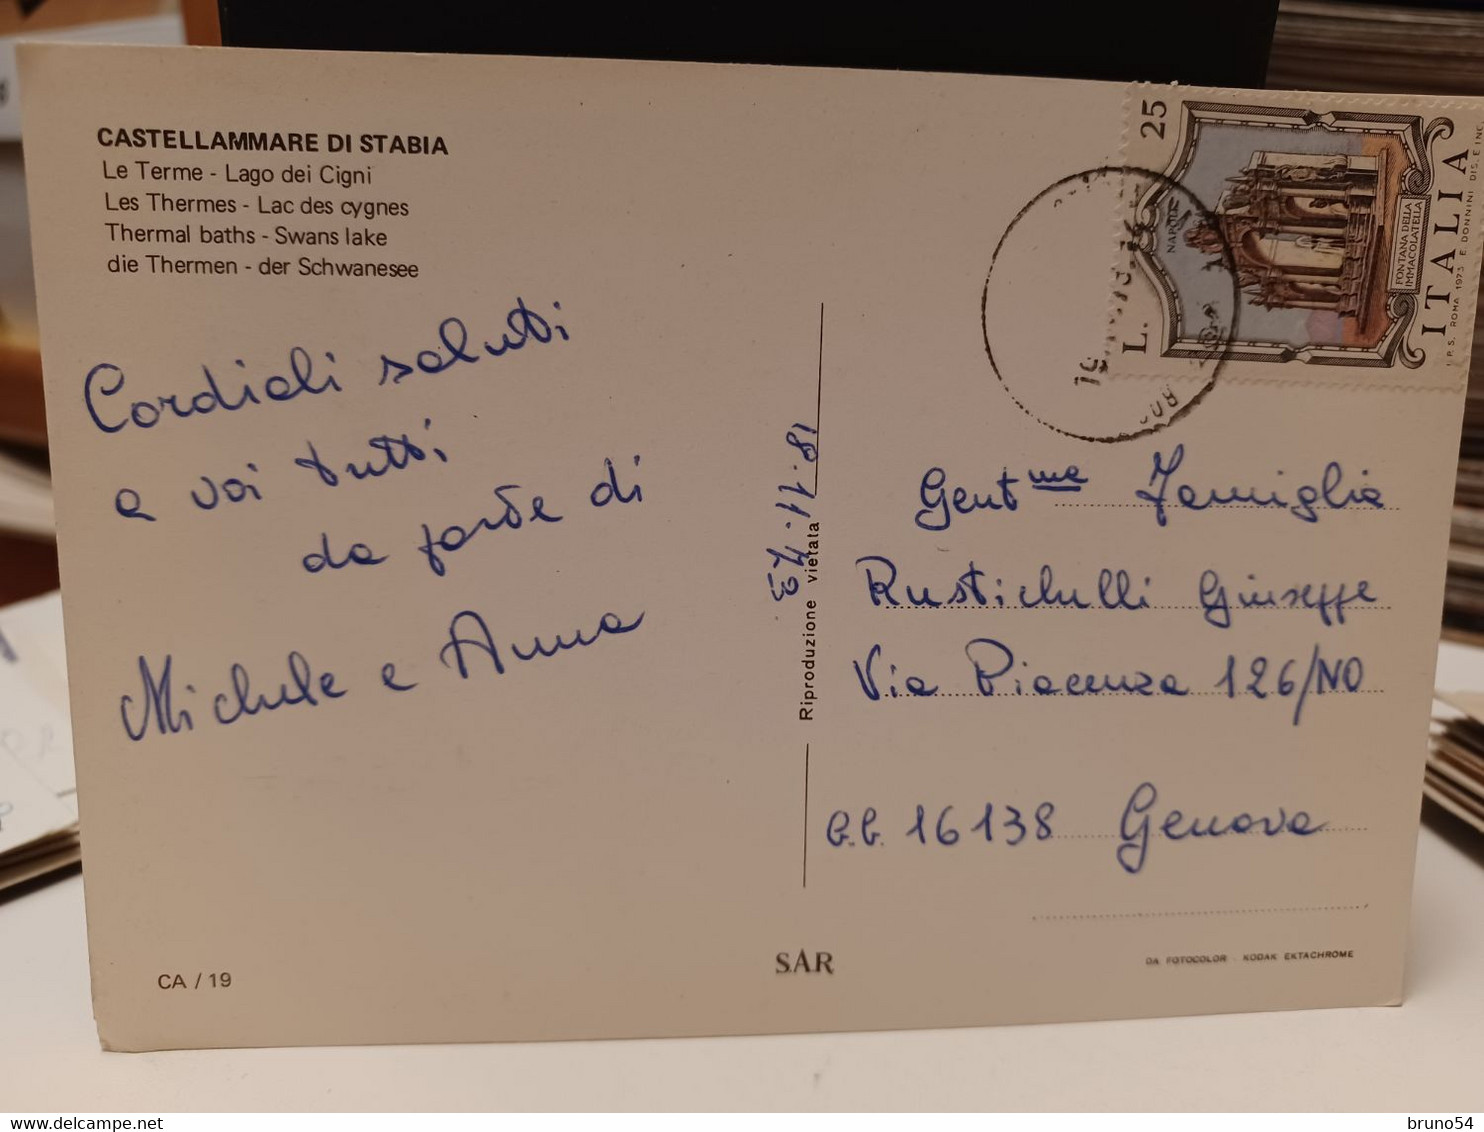 CASTELLAMMARE DI STABIA
Le Terme - Lago dei Cigni
Les Thermes - Lac des cygnes
Thermal baths - Swans lake
die Thermen - der Schwanesee
Cordiali saluti
a voi tutti
da parte di
Michele e Anna
18.11.73
Riproduzione vietata
L. 25
ITALIA
NAPOLI
FONTANA DELLA
IMMACOLATELLA
I.P.S. ROMA 1973 E. DONNINI DIS. E INC.
Gent.me Famiglia
Rustichelli Giuseppe
Via Piacenza 126/NO
16138 Genova
CA / 19
SAR
DA FOTOCOLOR - KODAK EKTACHROME
delcampe.net
bruno54